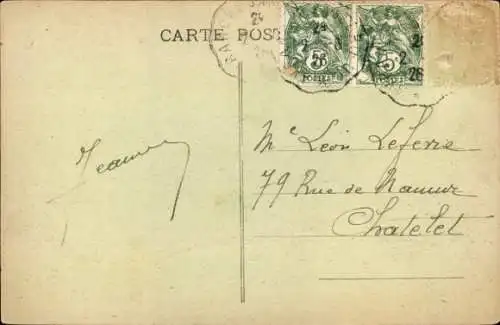 CARTE POST
24
5 5
POSTES POSTES
2 26
Jeanne
Mc Léon Lefevre
79 Rue de Namur
Chatelet